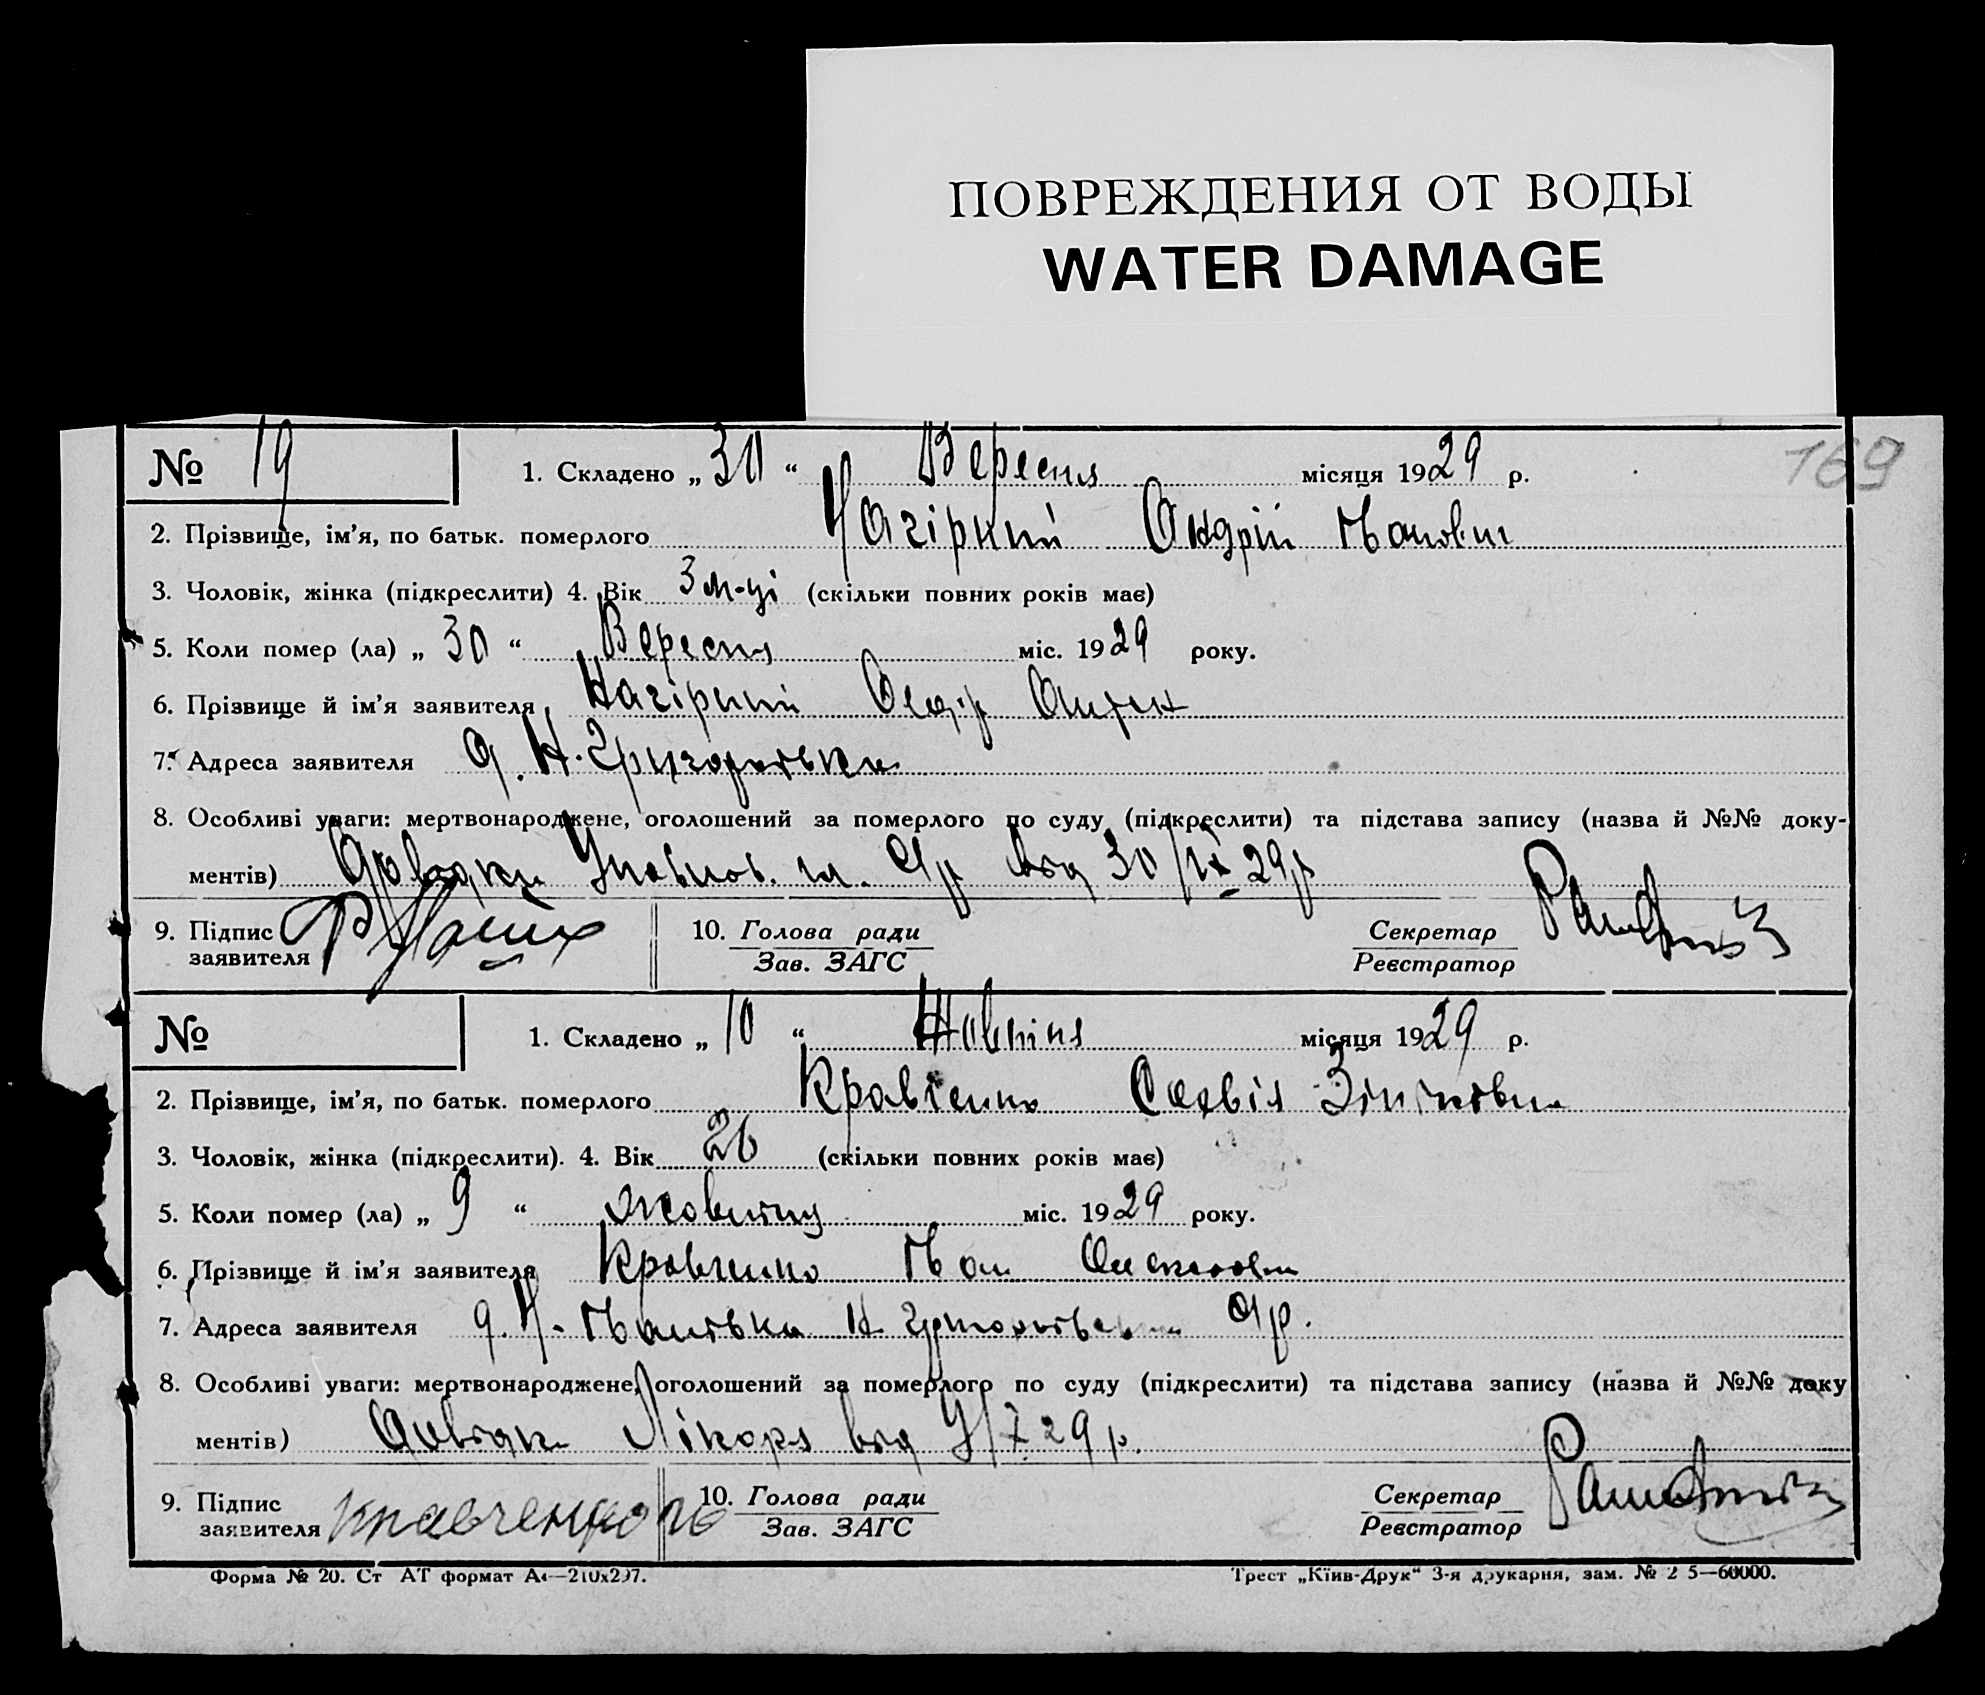 ПОВРЕЖДЕНИЯ ОТ ВОДЫ
WATER DAMAGE
169
№ 19
1. Складено „ 30 “ Вересня місяця 1929 р.
2. Прізвище, ім’я, по батьк. померлого Нагірний Андрій Іванович
3. Чоловік, жінка (підкреслити) 4. Вік 3 м-ці (скільки повних років має)
5. Коли помер (ла) „ 30 “ Вересня міс. 1929 року.
6. Прізвище й ім’я заявителя Нагірний
7. Адреса заявителя Н. Григорівка
8. Особливі уваги: мертвонароджене, оголошений за померлого по суду (підкреслити) та підстава запису (назва й №№ доку-
ментів) Довідки Уповнов. від 30/IX 29 р
9. Підпис заявителя
10. Голова ради
Зав. ЗАГС
Секретар
Реєстратор
№
1. Складено „ 10 “ Жовтня місяця 1929 р.
2. Прізвище, ім’я, по батьк. померлого Кравченко
3. Чоловік, жінка (підкреслити). 4. Вік 26 (скільки повних років має)
5. Коли помер (ла) „ 9 “ жовтня міс. 1929 року.
6. Прізвище й ім’я заявителя Кравченко Іван
7. Адреса заявителя Іванівка
8. Особливі уваги: мертвонароджене, оголошений за померлого по суду (підкреслити) та підстава запису (назва й №№ доку
ментів) Лікаря від 9/X 29 р.
9. Підпис заявителя Кравченко
10. Голова ради
Зав. ЗАГС
Секретар
Реєстратор
Форма № 20. Ст АТ формат А4—210х297.
Трест „Київ-Друк“ 3-я друкарня, зам. №